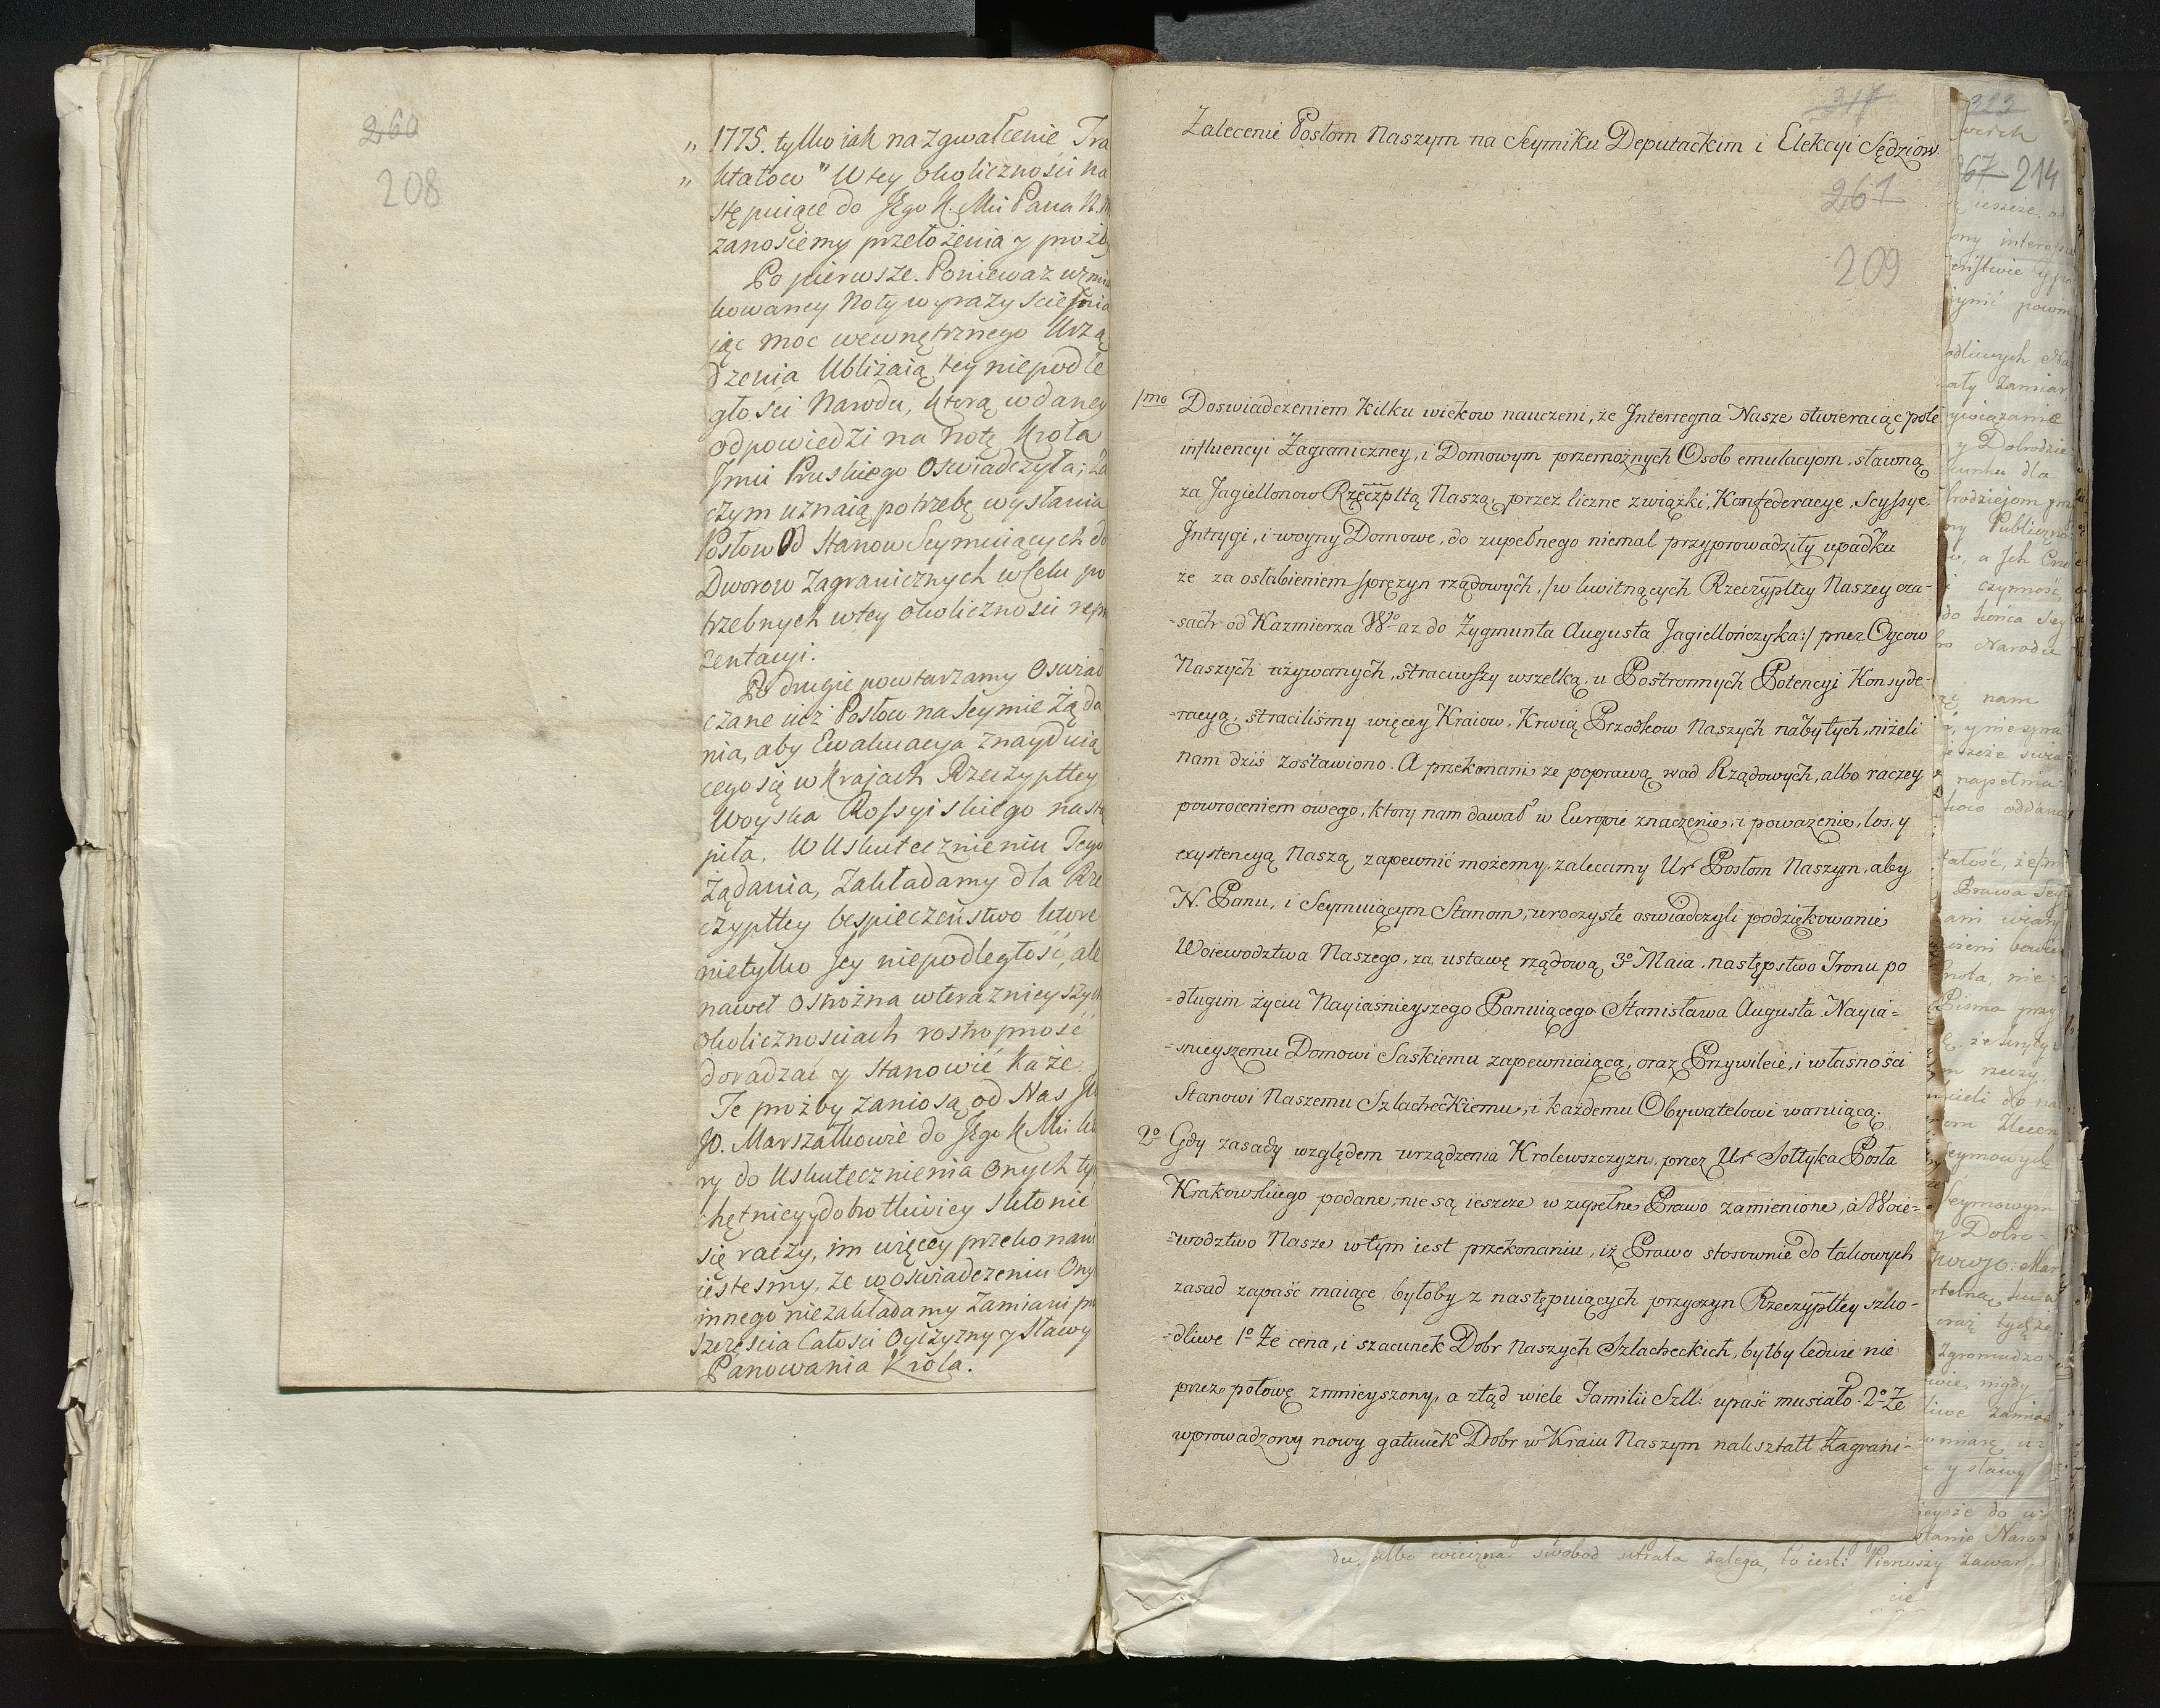 260
208
„ 1775. tylko iak na zgwałcenie Tra
„ ktatow" W tey okoliczności na
stępuiące do Jego K. Mci Pana N. M
zanosiemy przełożenia y proźby
Po pierwsze. Ponieważ wzmian
kowaney Noty wyrazy ścieśnia
iąc moc wewnętrznego Urzą
dzenia Ubliżaią tey niepodle
głości Narodu, którą w daney
odpowiedzi na Notę Krola
Jmci Pruskiego Oswiadczyła; Za
czym uznaią potrzebę wysłania
Posłow Od Stanow Seymuiących do
Dworow Zagranicznych w Celu po
trzebnych w tey okoliczności repre
zentacyi.
Po drugie powtarzamy Oswiad
czane ież Posłow na Seymie żąda
nia, aby Ewakuacya znayduią
cego się w Krajach Rzeczypltey
Woyska Rossyiskiego nastą
piła. W Uskutecznieniu Tego
Żądania, Zakładamy dla Rze
czypltey bespieczeństwo ktore
nietylko Jey niepodległość, ale
nawet ostrożna w teraznieyszych
okolicznosciach rostropność
doradzać y Stanowić każe.
Te prożby zaniosą od Nas JW
JO. Marszałkowie do Jego K Mci kto
ry do Uskutecznienia Onych tym
chętnieyydobrotliwiey skłonić
się raczy, im więcey przekonani
iestesmy, że w oswiadczeniu Onych
innego niezakładamy Zamiaru prócz
Szczęscia Całosci Oyczyzny y Sławy
Panowania Krola.
317
Zalecenie Posłom Naszym na Seymiku Deputackim i Elekcyi Sędziow
261
209
1mo Doswiadczeniem kilku wiekow nauczeni, że Interregna Nasze otwieraiąc pole
influencyi Zagraniczney, i Domowym przemożnych Osob emulacyom, sławną
za Jagiellonow Rzęczpltą Naszą, przez liczne związki, Konfederacye, Scyssye,
Intrygi, i woyny Domowe, do zupełnego niemal przyprowadziły upadku
że za osłabieniem sprężyn rządowych, /w kwitnących Rzeczypltey Naszey cza-
-sach od Kazmierza Wo aż do Zygmunta Augusta Jagiellończyka:/ przez Oycow
Naszych używanych, straciwszy wszelką u Postronnych Potencyi Konsyde-
-racyą, straciliśmy więcey Kraiow, Krwią Przodkow Naszych nabytych, niżeli
nam dziś zostawiono. A przekonani że poprawą wad Rządowych, albo raczey
powroceniem owego, ktory nam dawał w Europie znaczenie, i poważenie, los, y
exystencyą Naszą zapewnić możemy, zalecamy Ur Posłom Naszym, aby
N. Panu, i Seymuiącym Stanom, uroczyste oswiadczyli podziękowanie
Woiewodztwa Naszego, za ustawę rządową 3o Maia, następstwo Tronu po
-długim życiu Nayiasnieyszego Panuiącego Stanisława Augusta Nayia=
-snieyszemu Domowi Saskiemu zapewniaiącą, oraz Przywileie, i własności
Stanowi Naszemu Szlacheckiemu, i każdemu Obywatelowi waruiącą.
2o Gdy zasady względem urządzenia Krolewszczyzn, przez Ur Sołtyka Posła
Krakowskiego podane, nie są ieszcze w zupełne Prawo zamienione, a Woie=
-wodztwo Nasze w tym iest przekonaniu, iż Prawo stosownie do takowych
zasad zapaść maiące, byłoby z następuiących przyczyn Rzeczypltey szko-
-dliwe 1o Że cena, i szacunek Dobr Naszych Szlacheckich, byłby ledwie nie
przez połowę zmnieyszony, a ztąd wiele Familii Szll: upaść musiało. 2o Że
wprowadzony nowy gatunek Dobr w Kraiu Naszym nakształt Zagrani-
323
67 214
du, albo wieczna swobod utrata zalega, to iest: Pierwszy zawar
cie